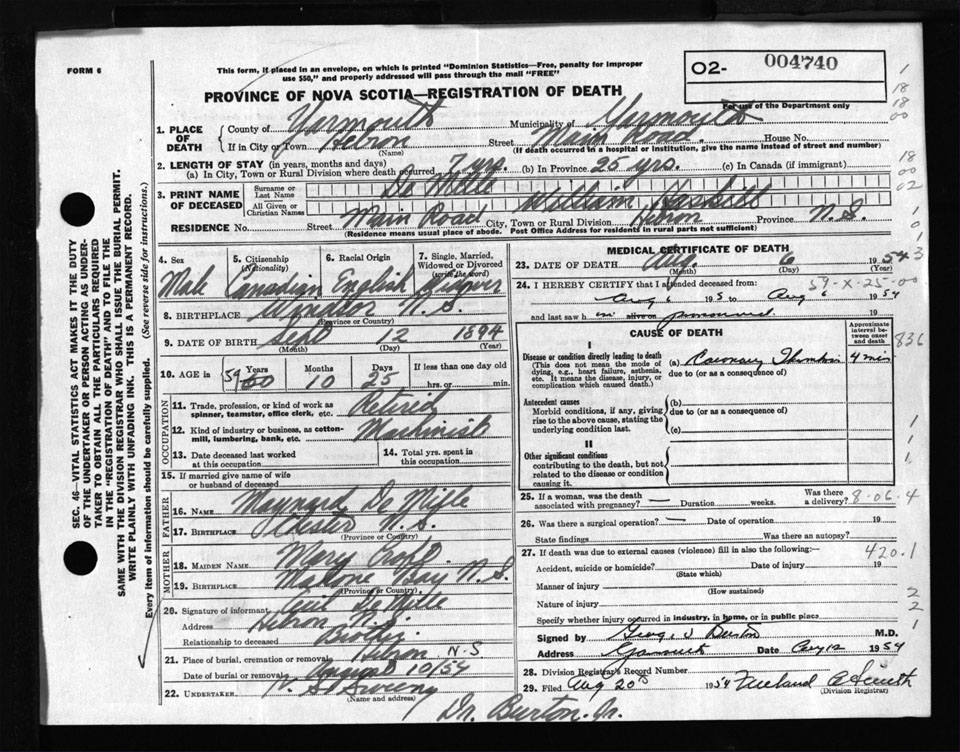 FORM 6
This form, if placed in an envelope, on which is printed "Dominion Statistics—Free, penalty for improper
use $50," and properly addressed will pass through the mail "FREE"
O2- 004740
For use of the Department only
PROVINCE OF NOVA SCOTIA—REGISTRATION OF DEATH
1. PLACE OF DEATH
County of Yarmouth Municipality of Yarmouth
If in City or Town Hebron Street Main Road House No.
(Name) (If death occurred in a hospital or institution, give the name instead of street and number)
2. LENGTH OF STAY (in years, months and days)
(a) In City, Town or Rural Division where death occurred 7 yrs. (b) In Province 25 yrs. (c) In Canada (if immigrant)
3. PRINT NAME OF DECEASED
Surname or Last Name De Mille
All Given or Christian Names William
RESIDENCE No. Street Main Road City, Town or Rural Division Hebron Province N.S.
(Residence means usual place of abode. Post Office Address for residents in rural parts not sufficient)
4. Sex Male
5. Citizenship (Nationality) Canadian
6. Racial Origin English
7. Single, Married, Widowed or Divorced (write the word) Widower
8. BIRTHPLACE Windsor N.S.
(Province or Country)
9. DATE OF BIRTH Sept 12 1894
(Month) (Day) (Year)
10. AGE in 59 Years 60 Months 10 Days 25 If less than one day old
hrs. or min.
OCCUPATION
11. Trade, profession, or kind of work as
spinner, teamster, office clerk, etc. Retired
12. Kind of industry or business, as cotton-
mill, lumbering, bank, etc. Machinist
13. Date deceased last worked
at this occupation
14. Total yrs. spent in
this occupation
15. If married give name of wife
or husband of deceased
FATHER
16. NAME Maynard De Mille
17. BIRTHPLACE Chester N.S.
(Province or Country)
MOTHER
18. MAIDEN NAME Mary
19. BIRTHPLACE Mahone Bay N.S.
(Province or Country)
20. Signature of informant De Mille
Address Hebron N.S.
Relationship to deceased Brother
21. Place of burial, cremation or removal Hebron N.S
Date of burial or removal August 10/54
22. UNDERTAKER Sweeny
(Name and address)
Dr. Burton. Jr.
MEDICAL CERTIFICATE OF DEATH
23. DATE OF DEATH Aug. 6 1954
(Month) (Day) (Year)
24. I HEREBY CERTIFY that I attended deceased from 59-X-25-00
Aug 6 195 to Aug 6 1954
and last saw h im alive on pronounced 19
CAUSE OF DEATH
Approximate interval between onset and death
I
Disease or condition directly leading to death
(This does not mean the mode of
dying, e.g., heart failure, asthenia,
etc. It means the disease, injury, or
complication which caused death.)
(a) Coronary Thrombosis 4 min
due to (or as a consequence of)
Antecedent causes
Morbid conditions, if any, giving
rise to the above cause, stating the
underlying condition last.
(b)
due to (or as a consequence of)
(c)
II
Other significant conditions
contributing to the death, but not
related to the disease or condition
causing it.
25. If a woman, was the death
associated with pregnancy? — Duration weeks. Was there
a delivery? 8-06.4
26. Was there a surgical operation? — Date of operation 19
State findings Was there an autopsy?
27. If death was due to external causes (violence) fill in also the following:— 420.1
Accident, suicide or homicide? Date of injury 19
(State which)
Manner of injury
(How sustained)
Nature of injury
Specify whether injury occurred in industry, in home, or in public place
Signed by George V Burton M.D.
Address Yarmouth Date Aug 12 1954
28. Division Registrar's Record Number
29. Filed Aug 20th 1954
(Division Registrar)
SEC. 46—VITAL STATISTICS ACT MAKES IT THE DUTY
OF THE UNDERTAKER OR PERSON ACTING AS UNDER-
TAKER TO OBTAIN ALL THE PARTICULARS REQUIRED
IN THE "REGISTRATION OF DEATH" AND TO FILE THE
SAME WITH THE DIVISION REGISTRAR WHO SHALL ISSUE THE BURIAL PERMIT.
WRITE PLAINLY WITH UNFADING INK. THIS IS A PERMANENT RECORD.
Every item of information should be carefully supplied. (See reverse side for instructions.)
1
18
18
00
18
00
02
1
0
1
3
836
1
1
1
2
2
1